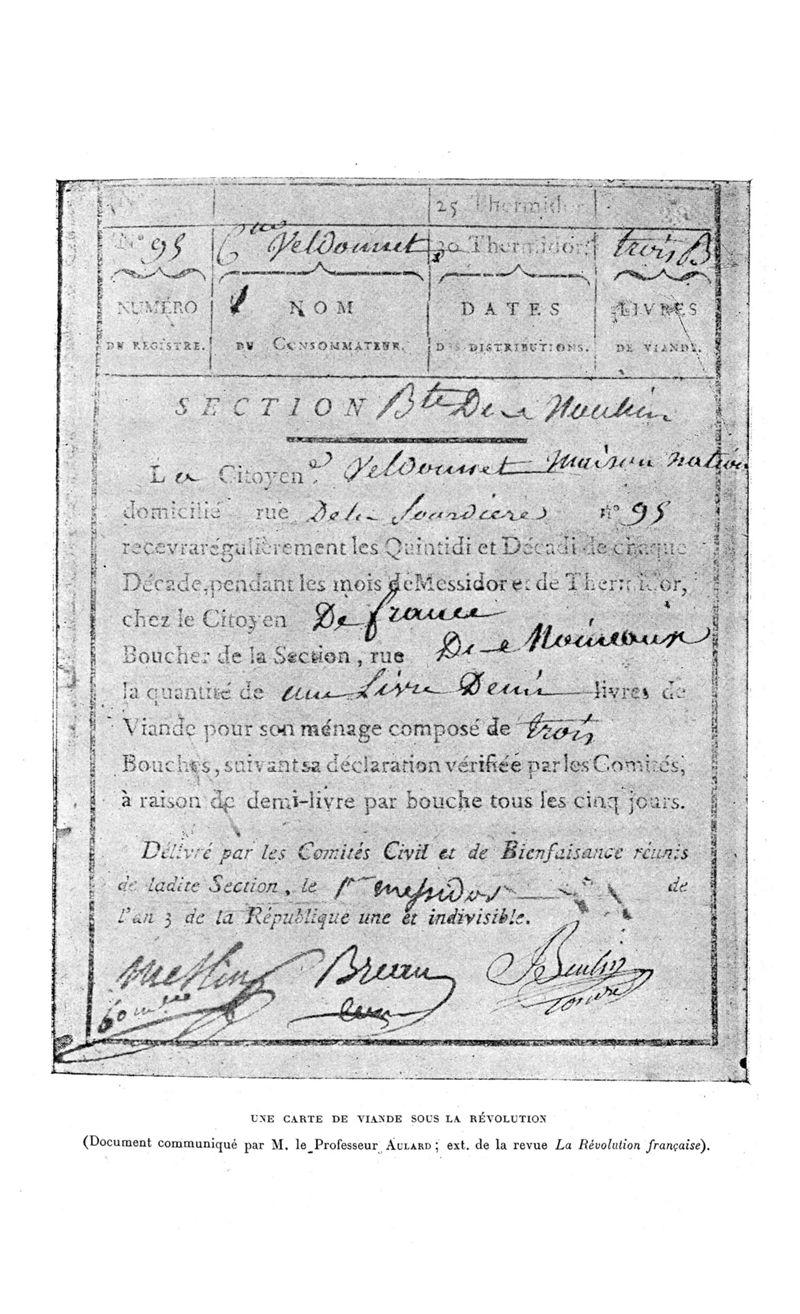 25 Thermidor
N° 95 Cne Veldonnet 30 Thermidor. trois B
NUMÉRO NOM DATES LIVRES
DU REGISTRE. DU CONSOMMATEUR. DES DISTRIBUTIONS. DE VIANDE.
SECTION Bte De Moulin
La Citoyenne Veldonnet maison nation
domicilié rue De la Sourdiere n° 95
recevra régulièrement les Quintidi et Décadi de chaque
Décade, pendant les mois de Messidor et de Thermidor,
chez le Citoyen De france
Boucher de la Section, rue De Moineaux
la quantité de une Livre Demi livres de
Viande pour son ménage composé de trois
Bouches, suivant sa déclaration vérifiée par les Comités,
à raison de demi-livre par bouche tous les cinq jours.
Délivré par les Comités Civil et de Bienfaisance réunis
de ladite Section, le 1er messidor de
l'an 3 de la République une et indivisible.
UNE CARTE DE VIANDE SOUS LA RÉVOLUTION
(Document communiqué par M. le Professeur AULARD ; ext. de la revue La Révolution française).